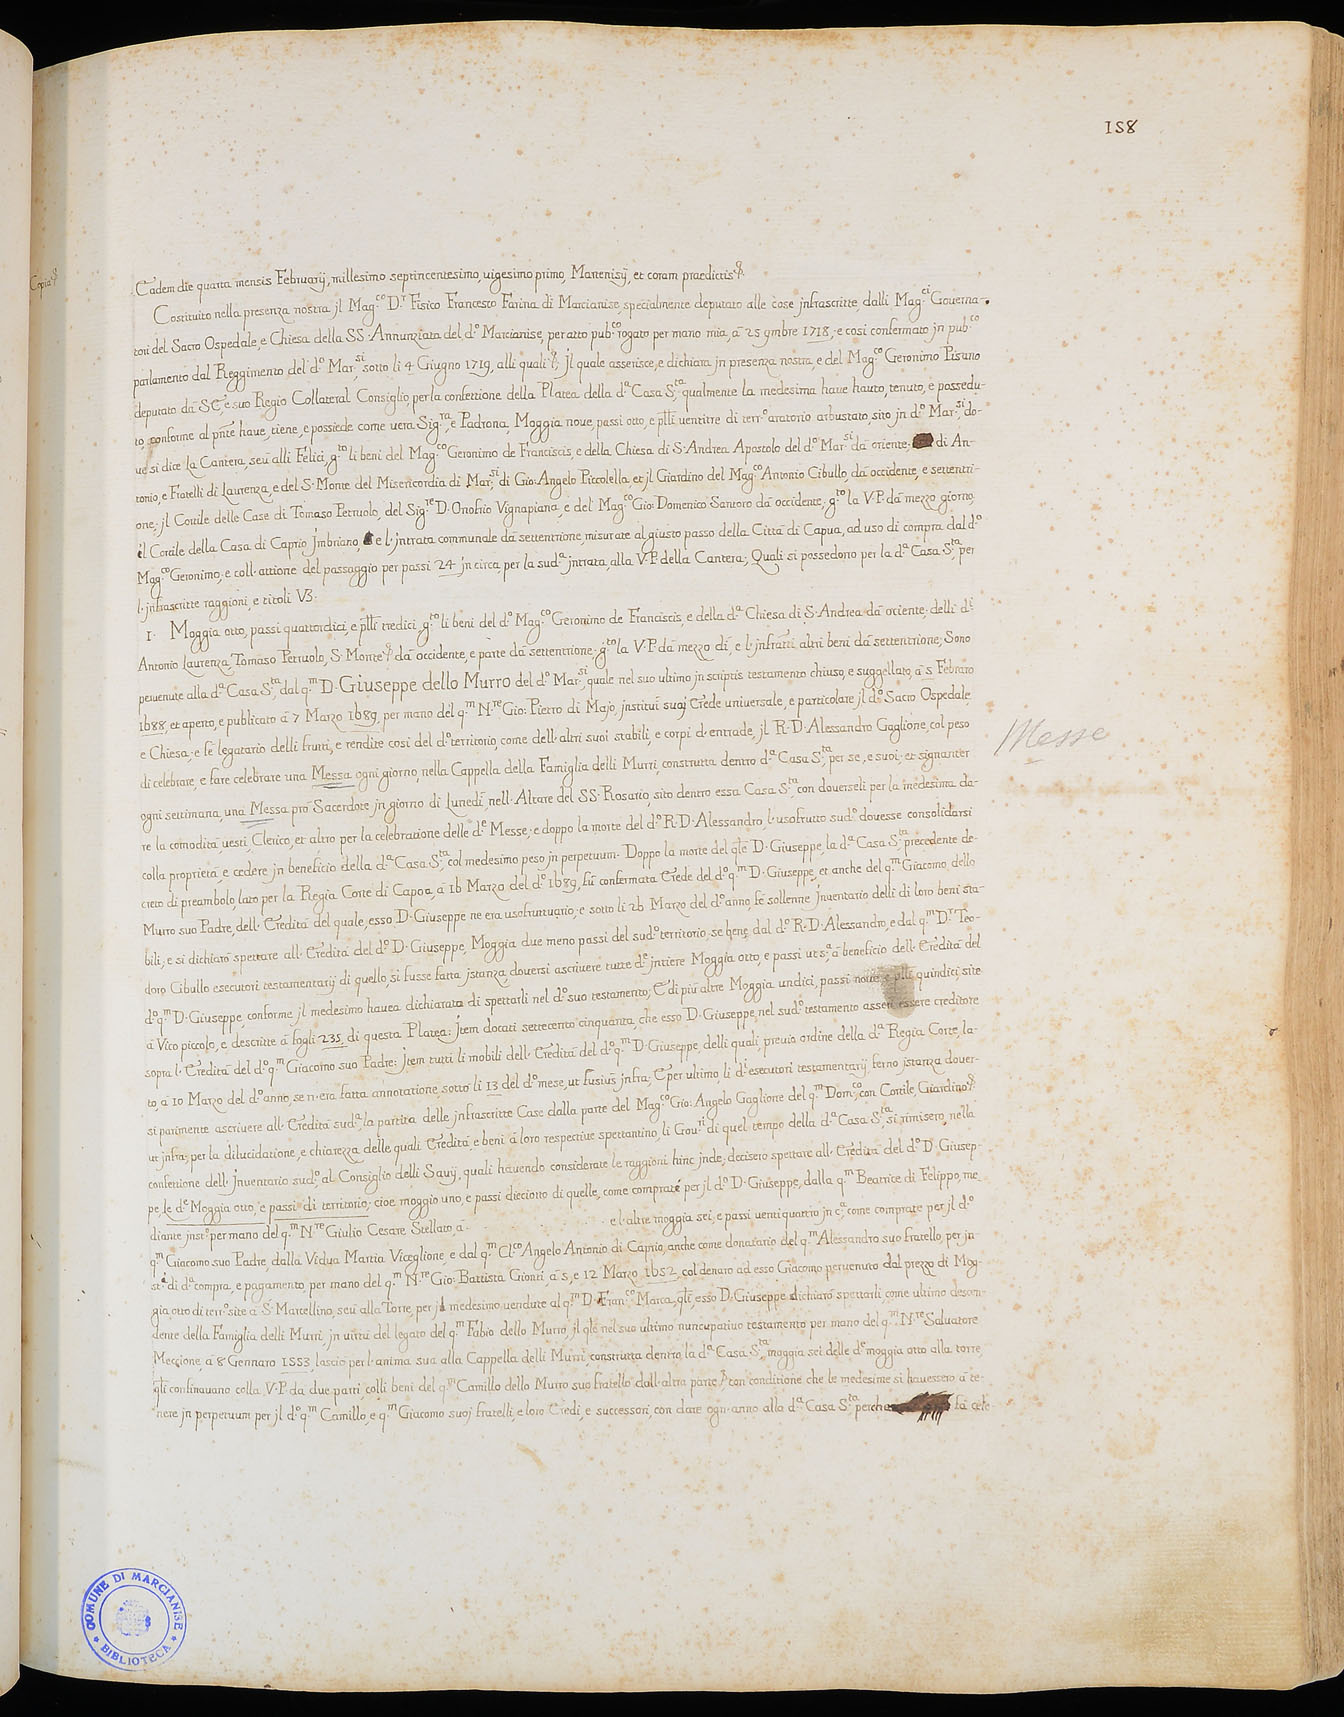 158
Copia
Eadem die quarta mensis Februarij, millesimo septincentesimo, uigesimo primo, Marcenisij, et coram praedictis
Costituito nella presenza nostra jl Mag.co D.r Fisico Francesco Farina di Marcianise, specialmente deputato alle cose jnfrascritte, dalli Mag.ci Gouerna-
tori del Sacro Ospedale, e Chiesa della SS. Annunziata del d.o Marcianise, per atto pub.co rogato per mano mia, à 25 9mbre 1718, e così confermato jn pub.co
parlamento dal Reggimento del d.o Mar.si, sotto li 4 Giugno 1719, alli quali jl quale asserisce, e dichiara jn presenza nostra, e del Mag.co Geronimo Pisano
deputato dà S.E, e suo Regio Collateral Consiglio, per la confettione della Platea della d.a Casa S.ta, qualmente la medesima haue hauto, tenuto, e possedu-
to, conforme al pnte haue, tiene, e possiede come uera Sig.ra, e Padrona, Moggia noue, passi otto, e plli uentitre di terr.o aratorio arbustato, sito jn d.o Mar.si, do-
ue si dice La Cantera, seù alli Felici, g.to li beni del Mag.co Geronimo de Franciscis, e della Chiesa di S. Andrea Apostolo del d.o Mar.si dà oriente; di An-
tonio, e Fratelli di Laurenza, e del S. Monte del Misericordia di Mar.si, di Gio: Angelo Piccolella, et jl Giardino del Mag.co Antonio Cibullo, dà occidente, e settentri-
one; jl Cortile delle Case di Tomaso Petruolo, del Sig.re D. Onofrio Vignapiana, e del Mag.co Gio: Domenico Santoro dà occidente; g.to la V.P. dà mezzo giorno,
il Cortile della Casa di Caprio Jmbriano, e l'jntrata communale dà settentrione, misurate al giusto passo della Città di Capua, ad uso di compra, dal d.o
Mag.co Geronimo, e coll'attione del passaggio per passi 24 jn circa, per la sud.a jntrata, alla V.P. della Cantera; Quali si possedono per la d.a Casa S.ta, per
l'jnfrascritte raggioni, e titoli V3.
1. Moggia otto, passi quattordici, e plli tredici g.to li beni del d.o Mag.co Geronimo de Franciscis, e della d.a Chiesa di S. Andrea dà oriente; delli d.i
Antonio Laurenza, Tomaso Petruolo, S. Monte dà occidente, e parte dà settentrione; g.to la V.P. dà mezzo dì, e l'jnfratti altri beni dà settentrione; Sono
peruenute alla d.a Casa S.ta, dal q.m D. Giuseppe dello Murro del d.o Mar.si, quale nel suo ultimo jn scriptis testamento chiuso, e suggellato, à 5 Febraro
1688, et aperto, e publicato à 7 Marzo 1689, per mano del q.m N.re Gio: Pietro di Majo, jnstituì suaj Erede uniuersale, e particolare jl d.o Sacro Ospedale,
e Chiesa; e fè legatario delli frutti, e rendite così del d.o territorio, come dell'altri suoi stabili, e corpi d'entrade, jl R.D. Alessandro Gaglione, col peso
di celebrare, e fare celebrare una Messa ogni giorno, nella Cappella della Famiglia delli Murri, construtta dentro d.a Casa S.ta, per se, e suoi; et signanter
ogni settimana, una Messa prò Sacerdote jn giorno di Lunedì, nell'Altare del SS. Rosario, sito dentro essa Casa S.ta, con douerseli per la medesima da-
re la comodità, uesti, Clerico, et altro per la celebratione delle d.e Messe; e doppo la morte del d.o R.D. Alessandro, l'usofrutto sud.o douesse consolidarsi
colla proprietà, e cedere jn beneficio della d.a Casa S.ta, col medesimo peso jn perpetuum. Doppo la morte del qle D. Giuseppe, la d.a Casa S.ta, precedente de-
creto di preambolo, lato per la Regia Corte di Capoa, à 16 Marzo del d.o 1689, fù confermata Erede del d.o q.m D. Giuseppe, et anche del q.m Giacomo dello
Murro suo Padre, dell'Eredità del quale, esso D. Giuseppe ne era usofruttuario; e sotto li 26 Marzo del d.o anno, fè sollenne jnuentario delli di loro beni sta-
bili, e si dichiarò spettare all'Eredità del d.o D. Giuseppe, Moggia due meno passi del sud.o territorio, se bene dal d.o R.D. Alessandro, e dal q.m D.r Teo-
doro Cibullo esecutori testamentarij di quello, si fusse fatta jstanza, douersi ascriuere tutte d.e jntiere Moggia otto, e passi ut s.a à beneficio dell'Eredità del
d.o q.m D. Giuseppe, conforme jl medesimo hauea dichiarata di spettarli nel d.o suo testamento; E di più altre Moggia undici, passi noue, e plli quindici site
à Vico piccolo, e descritte à fogli 235, di questa Platea; Jtem docati settecento cinquanta, che esso D. Giuseppe, nel sud.o testamento asserì essere creditore
sopra l'Eredità del d.o q.m Giacomo suo Padre; Jtem tutti li mobili dell'Eredità del d.o q.m D. Giuseppe, delli quali, preuio ordine della d.a Regia Corte, la-
to, à 10 Marzo del d.o anno, se n'era fatta annotatione, sotto li 13 del d.o mese, ut fusius jnfra; E per ultimo, li d.i esecutori testamentarij, ferno jstanza douer-
si parimente ascriuere all'Eredità sud.a, la partita delle jnfrascritte Case dalla parte del Mag.co Gio: Angelo Gaglione del q.m Dom.co, con Cortile, Giardino
ut jnfra; per la dilucidatione, e chiarezza delle quali Eredità, e beni à loro respectiue spettantino, li Gou.ri di quel tempo della d.a Casa S.ta, si rimisero, nella
confettione dell'Jnuentario sud.o, al Consiglio delli Sauij, quali hauendo considerate le raggioni hinc jnde, decisero spettare all'Eredità del d.o D. Giusep-
pe, le d.e Moggia otto, e passi di territorio; cioè moggio uno, e passi dieciotto di quelle, come comprate per jl d.o D. Giuseppe, dalla q.m Beatrice di Felippo, me-
diante jnst.o per mano del q.m N.re Giulio Cesare Stellato, à e l'altre moggia sei, e passi uentiquattro jn c.a, come comprate per jl d.o
q.m Giacomo suo Padre, dalla Vidua Martia Viceglione, e dal q.m Cl.co Angelo Antonio di Caprio, anche come donatario del q.m Alessandro suo fratello, per jn-
st.i di d.a compra, e pagamento, per mano del q.m N.re Gio: Battista Gionti, à 5, e 12 Marzo 1652, col denaro ad esso Giacomo peruenuto dal prezzo di Mog-
gia otto di terr.o site à S. Marcellino, seù alla Torre, per jl medesimo uendute al q.m D. Fran.co Marca, qli, esso D. Giuseppe dichiarò spettarli come ultimo descen-
dente della Famiglia delli Murri, jn uirtù del legato del q.m Fabio dello Murro, jl qle nel suo ultimo nuncupatiuo testamento per mano del q.m N.re Saluatore
Meccione, à 8 Gennaro 1553, lasciò per l'anima sua alla Cappella delli Murri, construtta dentro la d.a Casa S.ta, moggia sei delle d.e moggia otto alla torre,
qli confinauano colla V.P. da due parti, colli beni del q.m Camillo dello Murro suo fratello dall'altra parte con conditione che le medesime si hauessero à te-
nere jn perpetuum per jl d.o q.m Camillo, e q.m Giacomo suoj fratelli, e loro Eredi, e successori, con dare ogn'anno alla d.a Casa S.ta fà cele-
Messe
COMUNE DI MARCIANISE
BIBLIOTECA